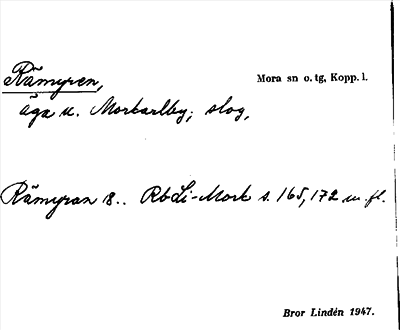 Rämyren,
Mora sn o. tg, Kopp. l.
äga u. Morkarlby; slog,
Rämyran 18.. RbLi-Mork s. 165, 172 m. fl.
Bror Lindén 1947.